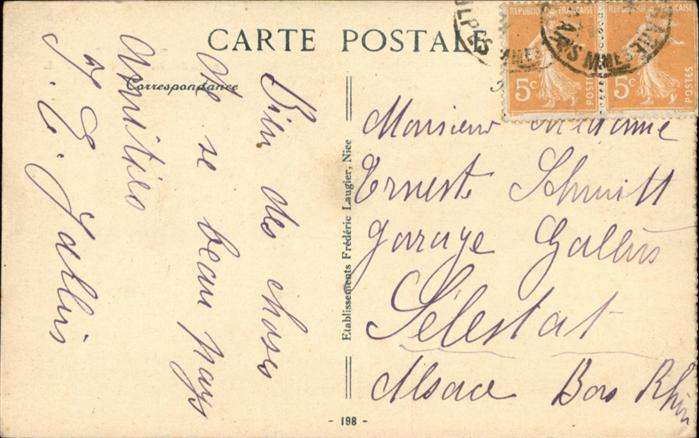 CARTE POSTALE
Correspondance
Bien des choses
de se beau pays
amitiés
Gallus
Etablissements Frédéric Laugier, Nice
- 198 -
RÉPUBLIQUE FRANÇAISE
5c
POSTES
5c
POSTES
Monsieur Madame
Erneste Schmitt
garage Gallus
Sélestat
Alsace Bas Rhin